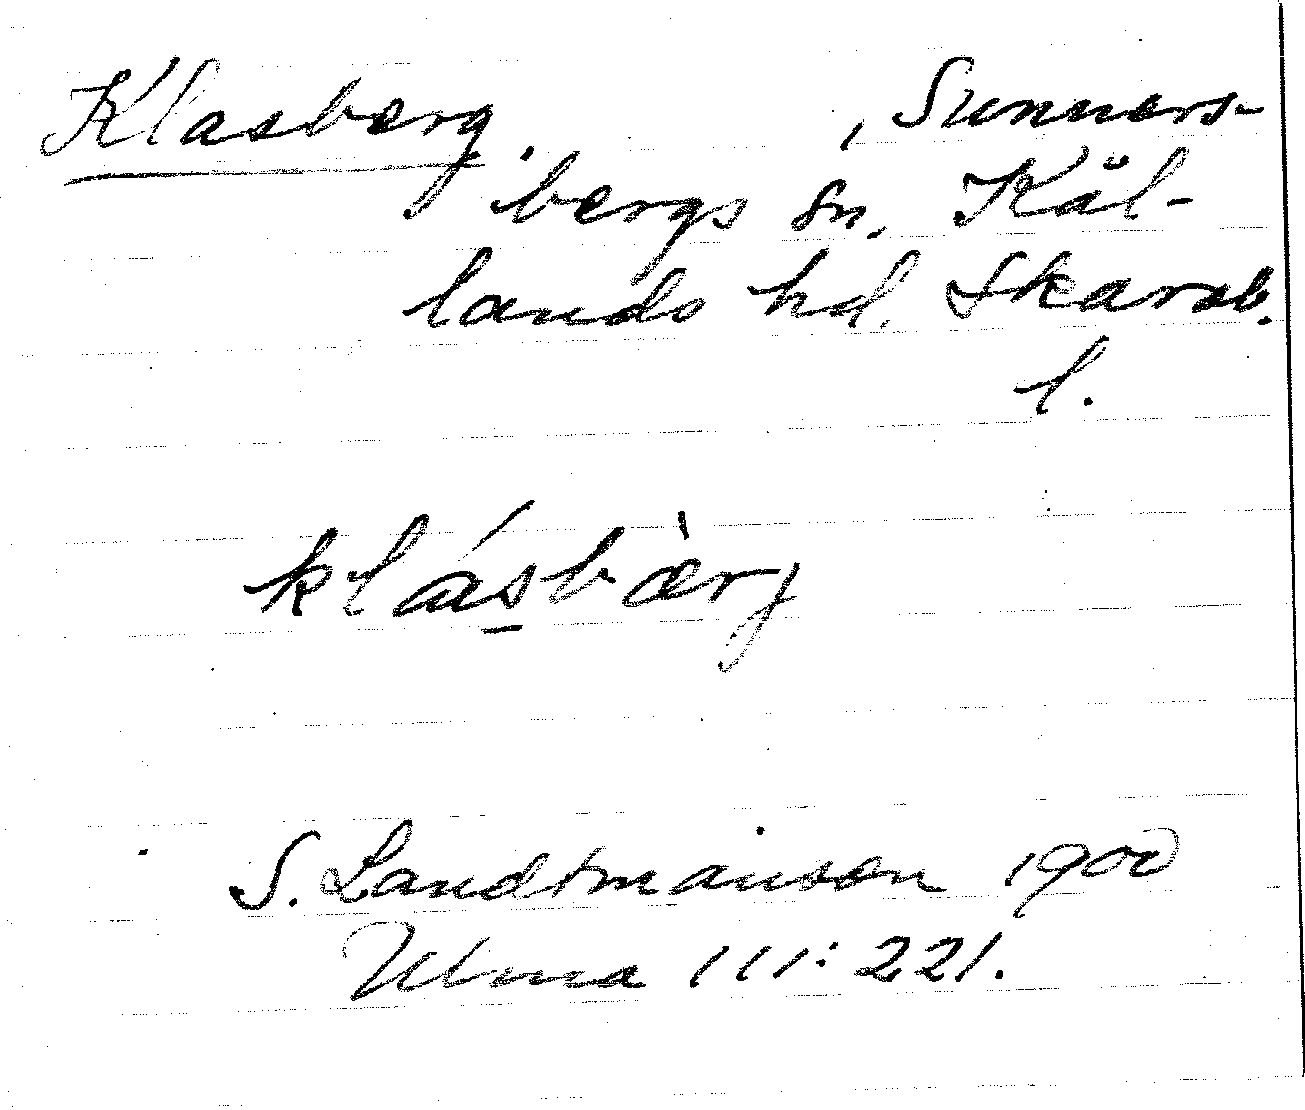 Klasberg. , Sunners-
bergs sn. Kål-
lands hd. Skarab.
l.
klásbàrj
S. Landtmanson 1900
Ulma 111:221.